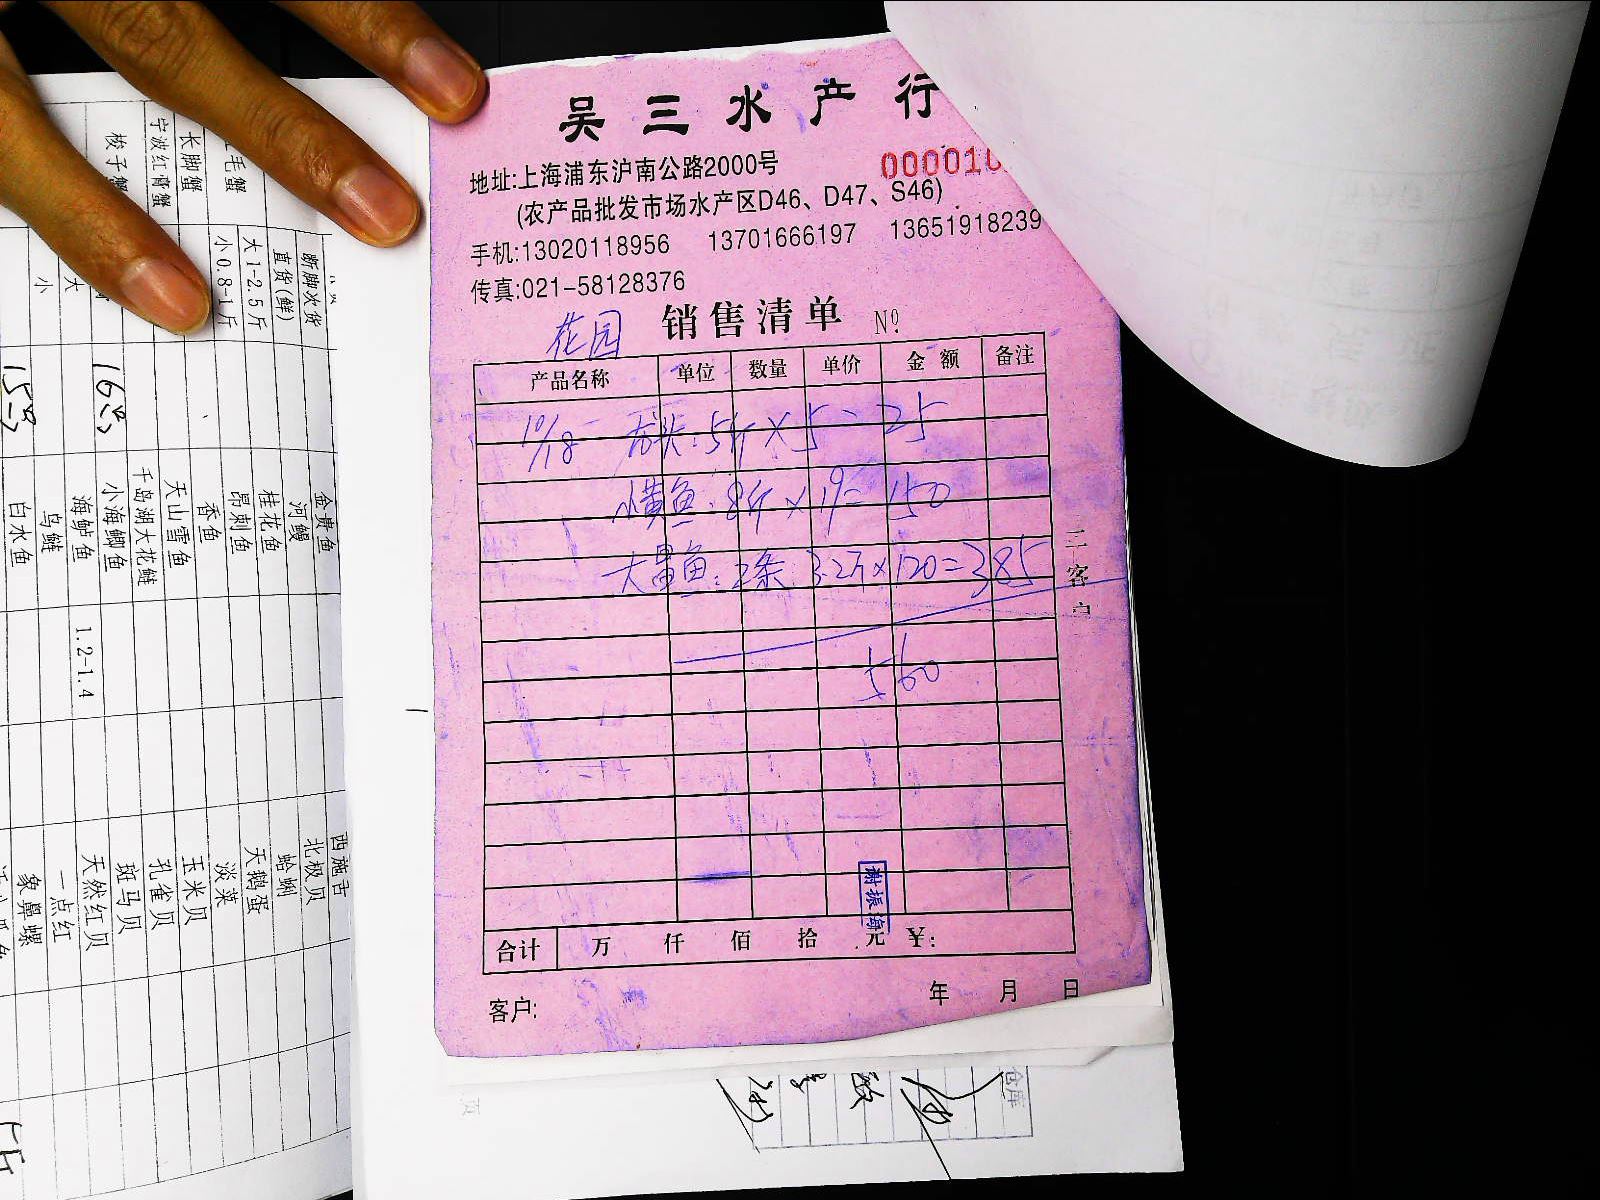 吴三水产行
地址:上海浦东沪南公路2000号
000010
(农产品批发市场水产区D46、D47、S46)
手机:13020118956 13701666197 13651918239
传真:021-58128376
花园 销售清单 Nº
产品名称 单位 数量 单价 金额 备注
10/18 5斤×5=25
小黄鱼:8斤×19=150
大昌鱼:2条 3.2斤×120=385
560
谢振海
合计 万 仟 佰 拾 元 ¥:
客户:
年 月 日
三客户
毛蟹
长脚蟹
宁波红膏蟹
梭子蟹
断脚次货
直货(鲜)
大1-2.5斤
小0.8-1斤
大
小
金贵鱼
河鳗
桂花鱼
昂刺鱼
香鱼
天山雪鱼
千岛湖大花鲢
小海鲫鱼
海鲈鱼
乌鲢
白水鱼
1.2-1.4
西施舌
北极贝
蛤蜊
天鹅蛋
淡菜
玉米贝
孔雀贝
斑马贝
天然红贝
一点红
象鼻螺
仓库
页